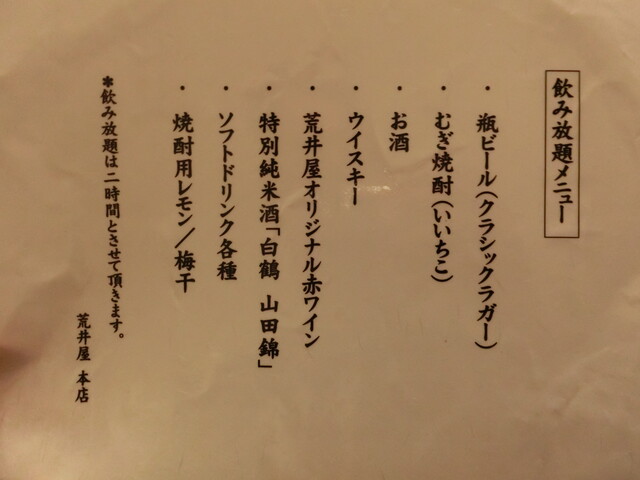 飲み放題メニュー
・瓶ビール（クラシックラガー）
・むぎ焼酎（いいちこ）
・お酒
・ウイスキー
・荒井屋オリジナル赤ワイン
・特別純米酒「白鶴 山田錦」
・ソフトドリンク各種
・焼酎用レモン／梅干
＊飲み放題は二時間とさせて頂きます。
荒井屋 本店